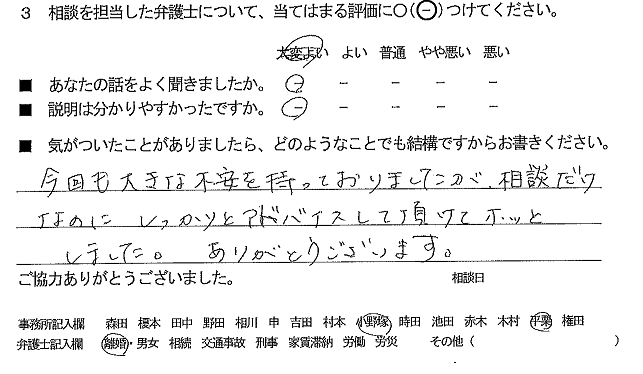 3 相談を担当した弁護士について、当てはまる評価に○(⊖)つけてください。
大変よい よい 普通 やや悪い 悪い
■ あなたの話をよく聞きましたか。 － － － － －
■ 説明は分かりやすかったですか。 － － － － －
■ 気がついたことがありましたら、どのようなことでも結構ですからお書きください。
今回も大きな不安を持っておりましたが、相談だけ
なのに しっかりとアドバイスして頂けてホッと
しました。 ありがとうございます。
ご協力ありがとうございました。 相談日
事務所記入欄 森田 榎本 田中 野田 相川 申 吉田 村本 小野塚 時田 池田 赤木 木村 平栗 権田
弁護士記入欄 離婚・男女 相続 交通事故 刑事 家賃滞納 労働 労災 その他（ ）